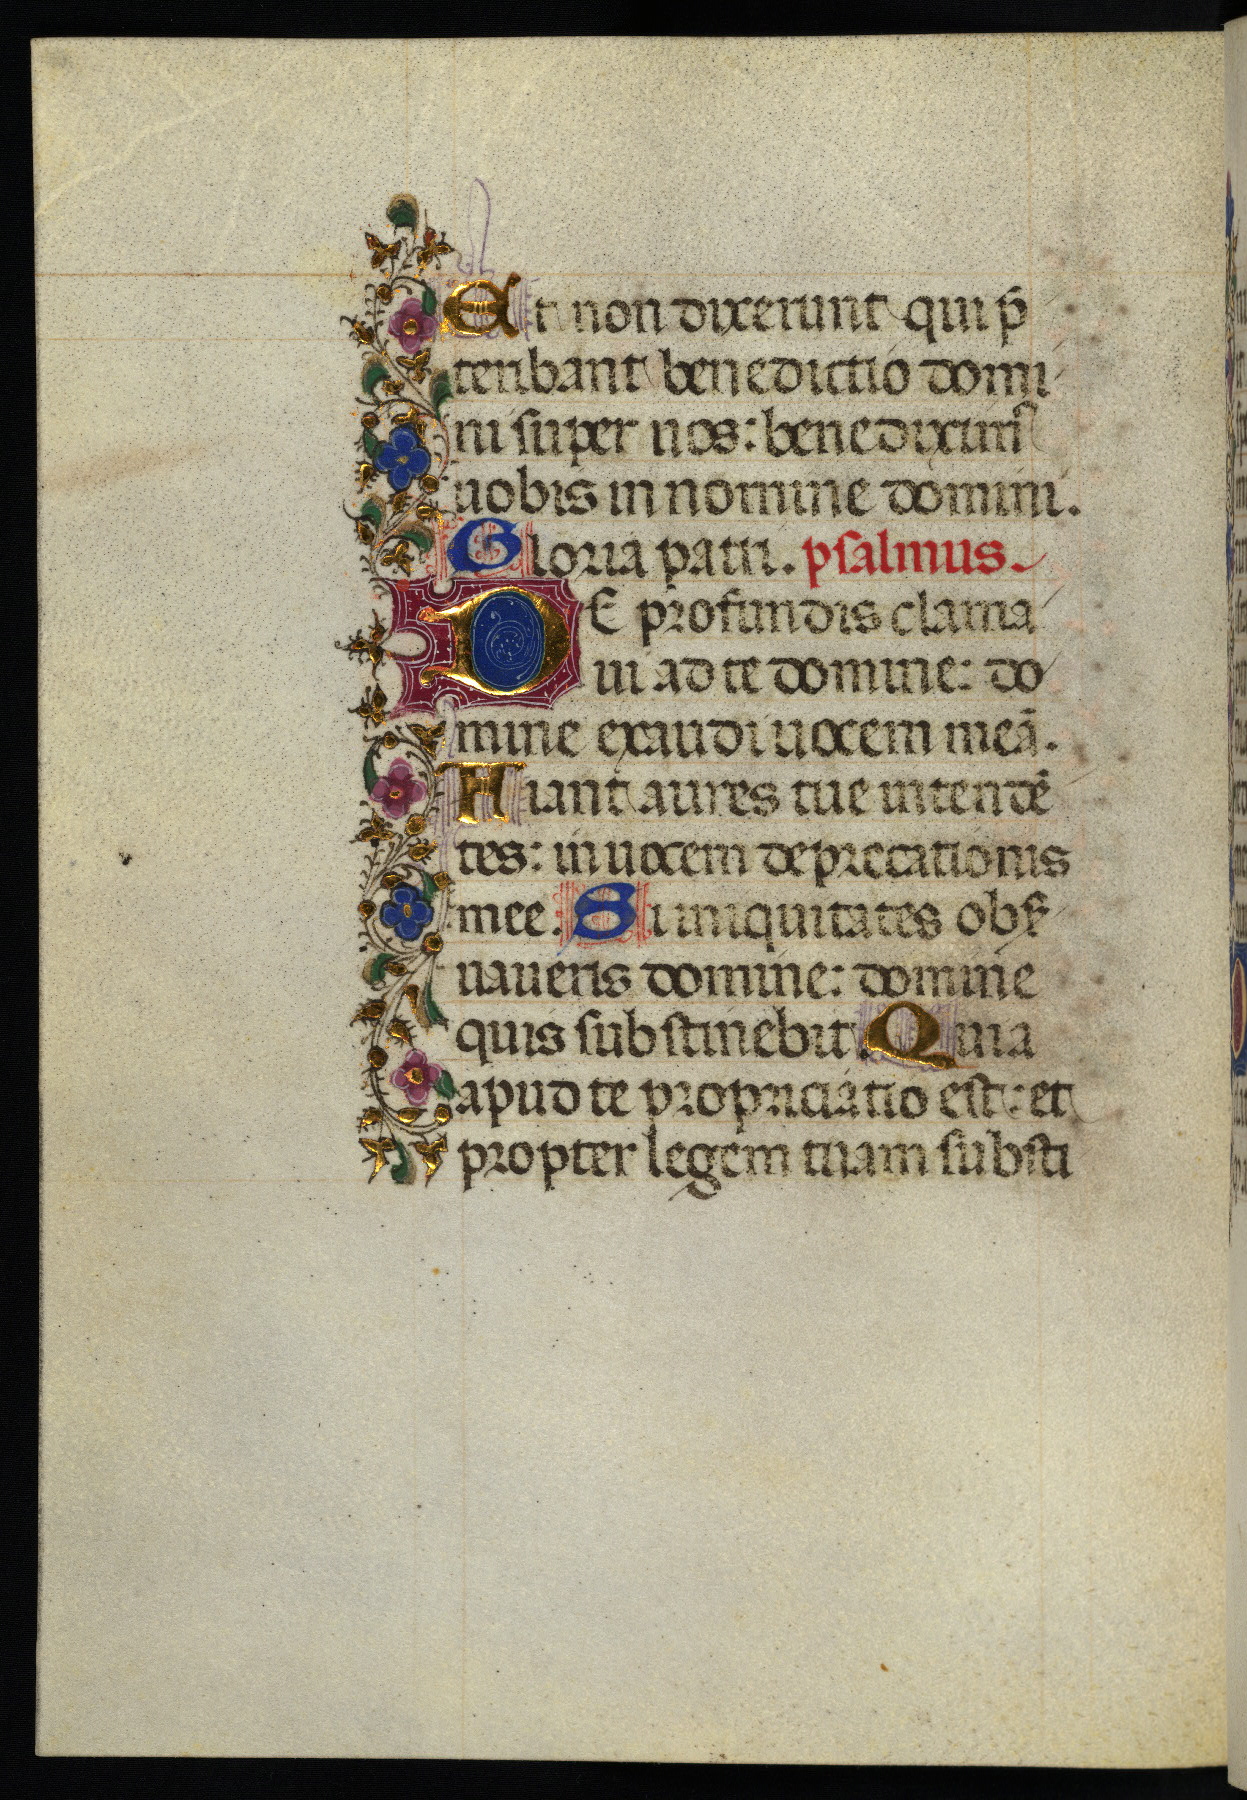 Et non dixerunt qui p̄
teribant benedictio domi
ni super nos: benediximꝰ
uobis in nomine domini.
Gloria patri. psalmus.
DE profundis clama
ui ad te domine: do
mine exaudi uocem meā.
Fiant aures tue intendē
tes: in uocem deprecationis
mee. Si iniquitates obẜ
uaueris domine: domine
quis substinebit. Quia
apud te propriciatio est: et
propter legem tuam substi